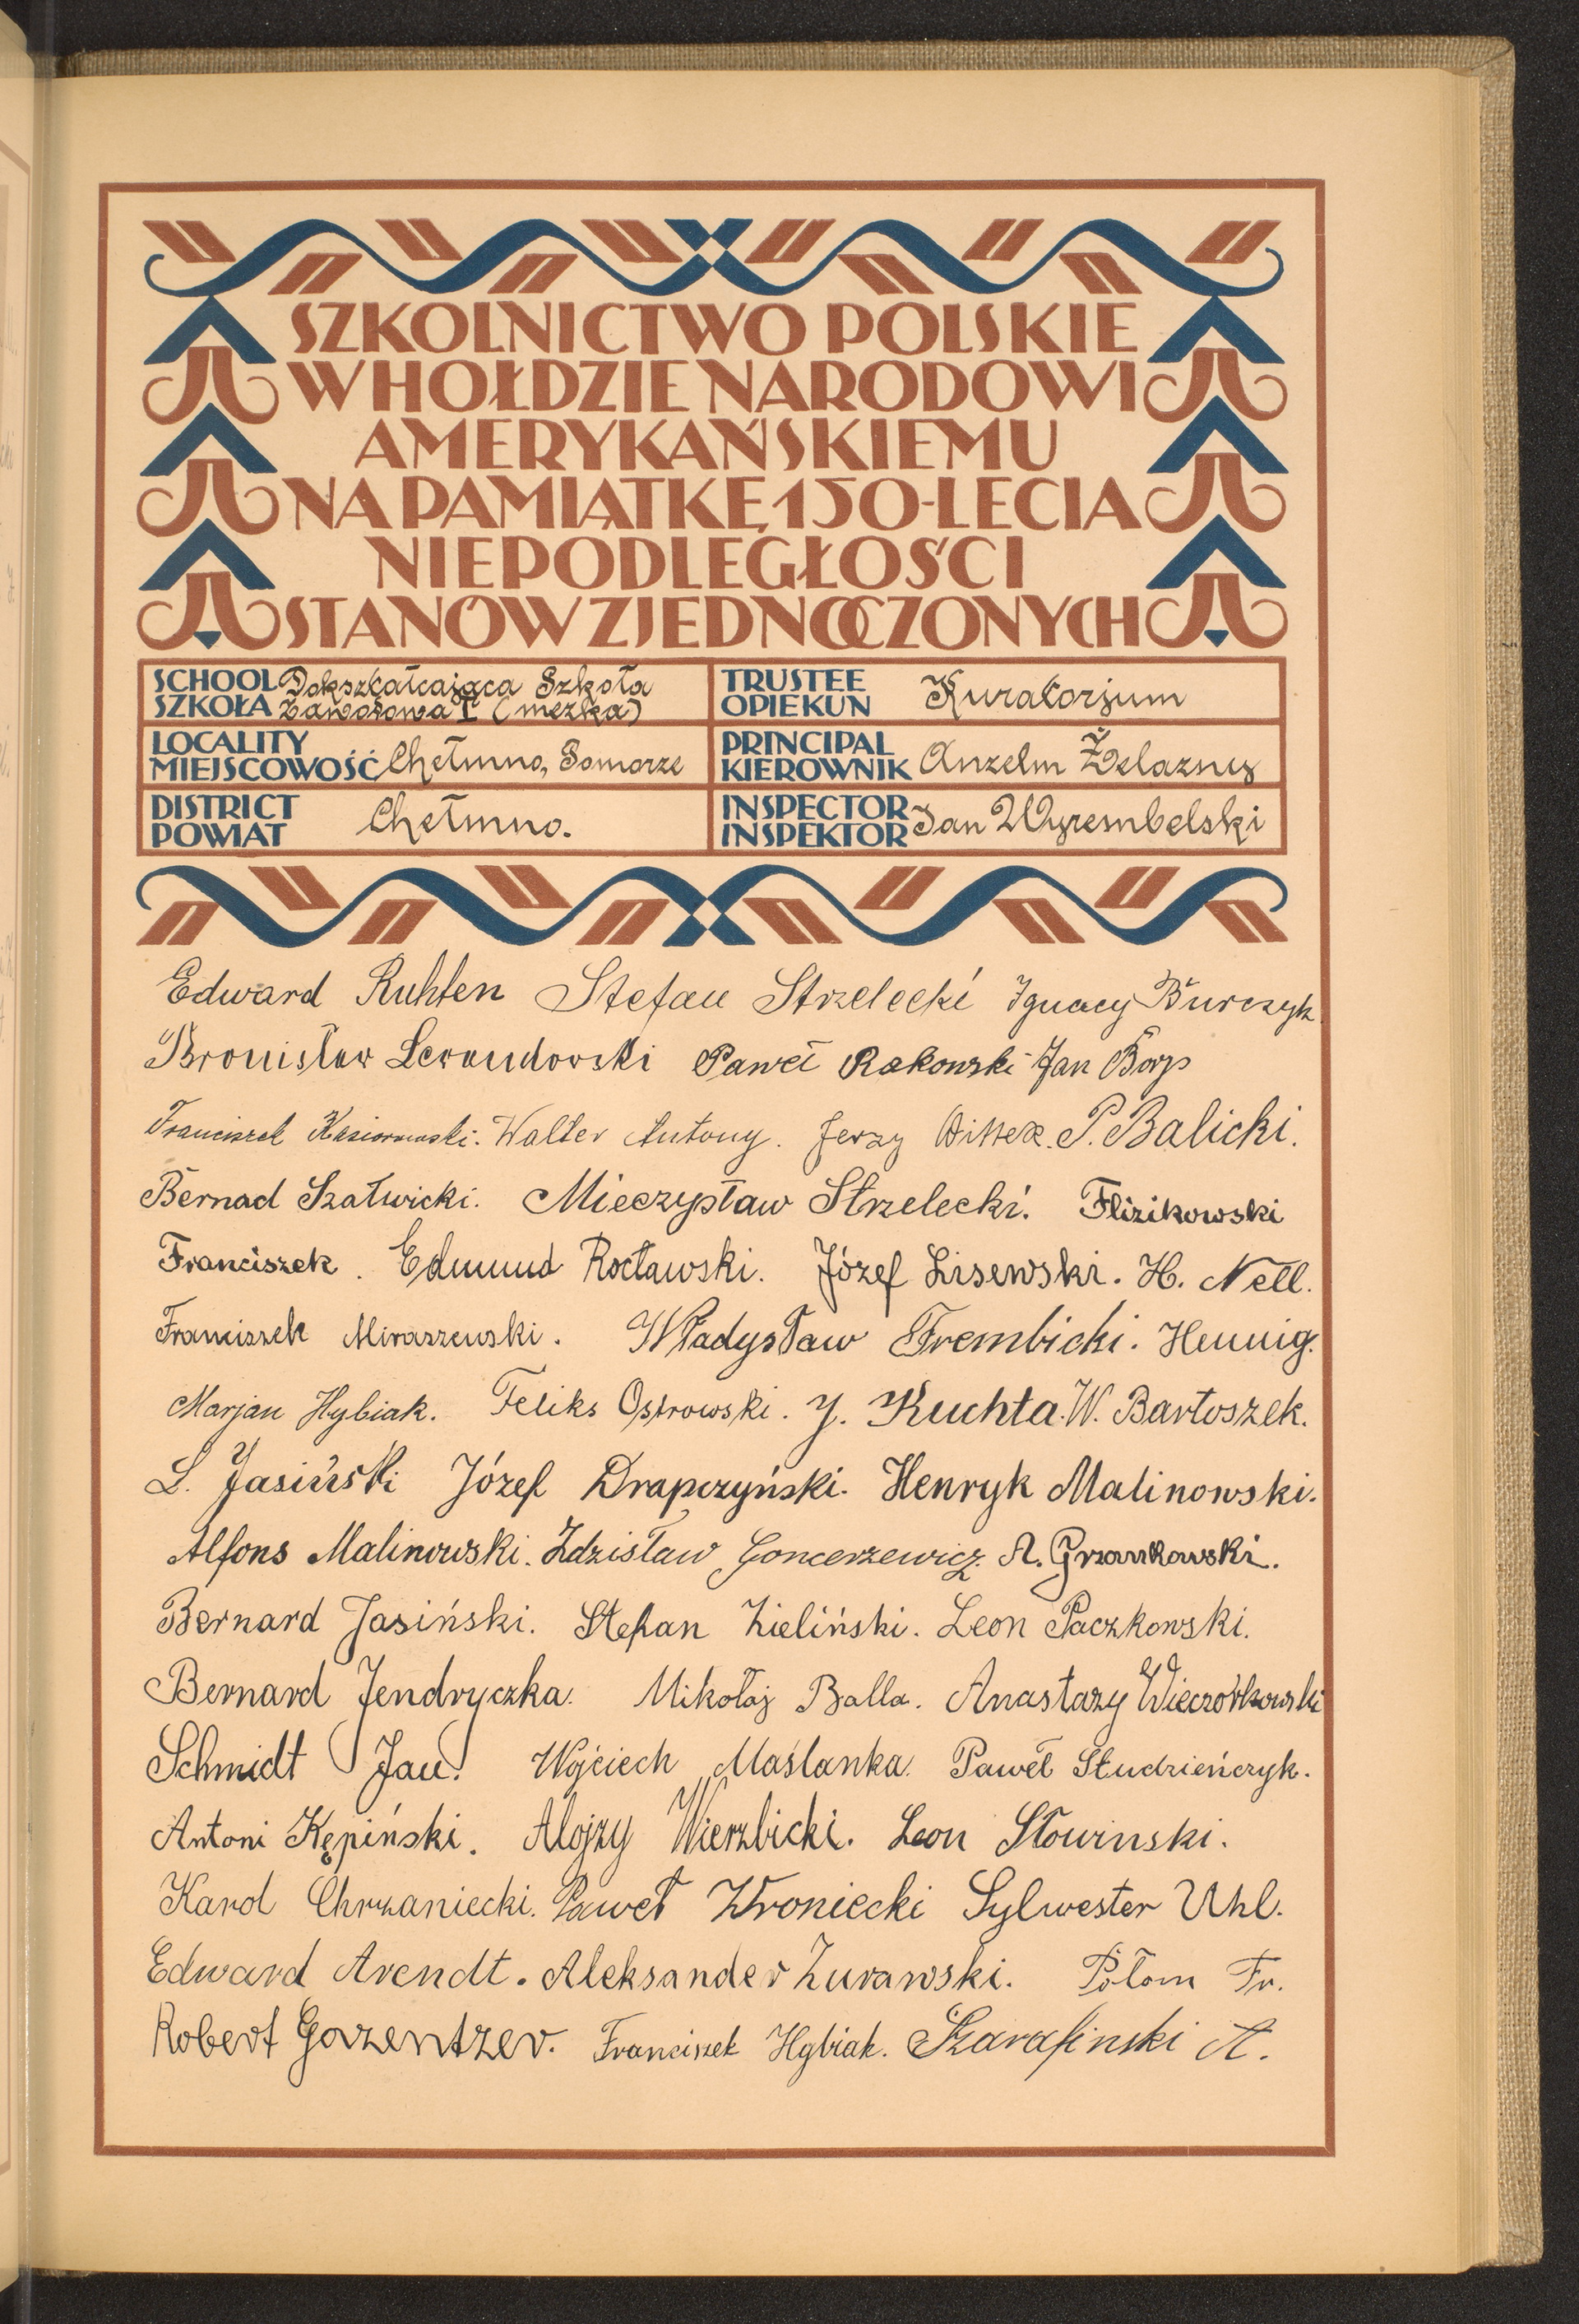 SZKOLNICTWO POLSKIE
W HOŁDZIE NARODOWI
AMERYKAŃSKIEMU
NA PAMIĄTKĘ 150-LECIA
NIEPODLEGŁOŚCI
STANÓW ZJEDNOCZONYCH
SCHOOL SZKOŁA Dokszkałcająca Szkoła Zawodowa I (męzka)
TRUSTEE OPIEKUN Kuratorjum
LOCALITY MIEJSCOWOŚĆ Chełmno, Pomorze
PRINCIPAL KIEROWNIK Anzelm Żelazny
DISTRICT POWIAT Chełmno.
INSPECTOR INSPEKTOR Jan Wyrembelski
Edward Ruhten Stefan Strzelecki Ignacy Burczyk
Bronisław Lewandowski Paweł Rakowski Jan Borys
Franciszek Walter Antony. Jerzy P. Balicki.
Bernad Szatwicki. Mieczysław Strzelecki. Flizikowski
Franciszek. Edmund Rocławski. Józef Lisewski. H. Nell.
Franciszek Miraszewski. Władysław Frembicki. Hennig.
Marjan Hybiak. Feliks Ostrowski. J. Kuchta. W. Bartoszek.
L. Jasiński Józef Drapczyński. Henryk Malinowski.
Alfons Malinowski. Zdzisław Goncerzewicz. A. Grzankowski.
Bernard Jasiński. Stefan Zieliński. Leon Paczkowski.
Bernard Jendryczka. Mikołaj Balla. Anastazy Wieczorkowski
Schmidt Jan. Wojciech Maślanka. Paweł Studzieńczyk.
Antoni Kępiński. Alojzy Wierzbicki. Leon Słowinski.
Karol Chrzaniecki. Paweł Wroniecki Sylwester Uhl.
Edward Arendt. Aleksander Żurawski. Połom Fr.
Robert Gorzentzer. Franciszek Hybiak. Szarafinski A.